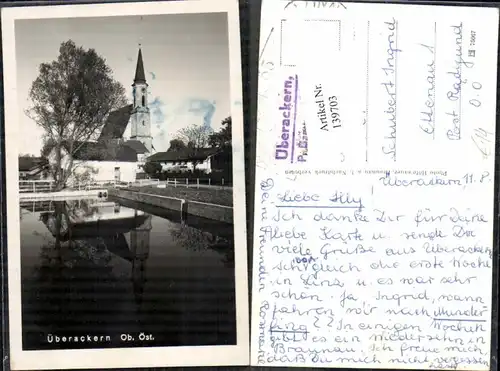 Überackern Ob. Öst.
Überackern,
Artikel Nr.
139703
Schubert Ingrid
Ettenau 1
Post Radegund
O.Ö.
Überackern 11. 8
Liebe
Ich danke Dir für Deine
liebe Karte u. sende Dir
viele Grüße aus Überackern
Ich gleich die erste Woche
in Linz u. es war sehr
schön. Ja, Ingrid, wann
fahren wir nach Munder
fing?? In einigen Wochen
gibt es ein Wiedersehn in
Braunau. Ich freue mich,
daß Du mich nicht vergessen
Deine Freundin